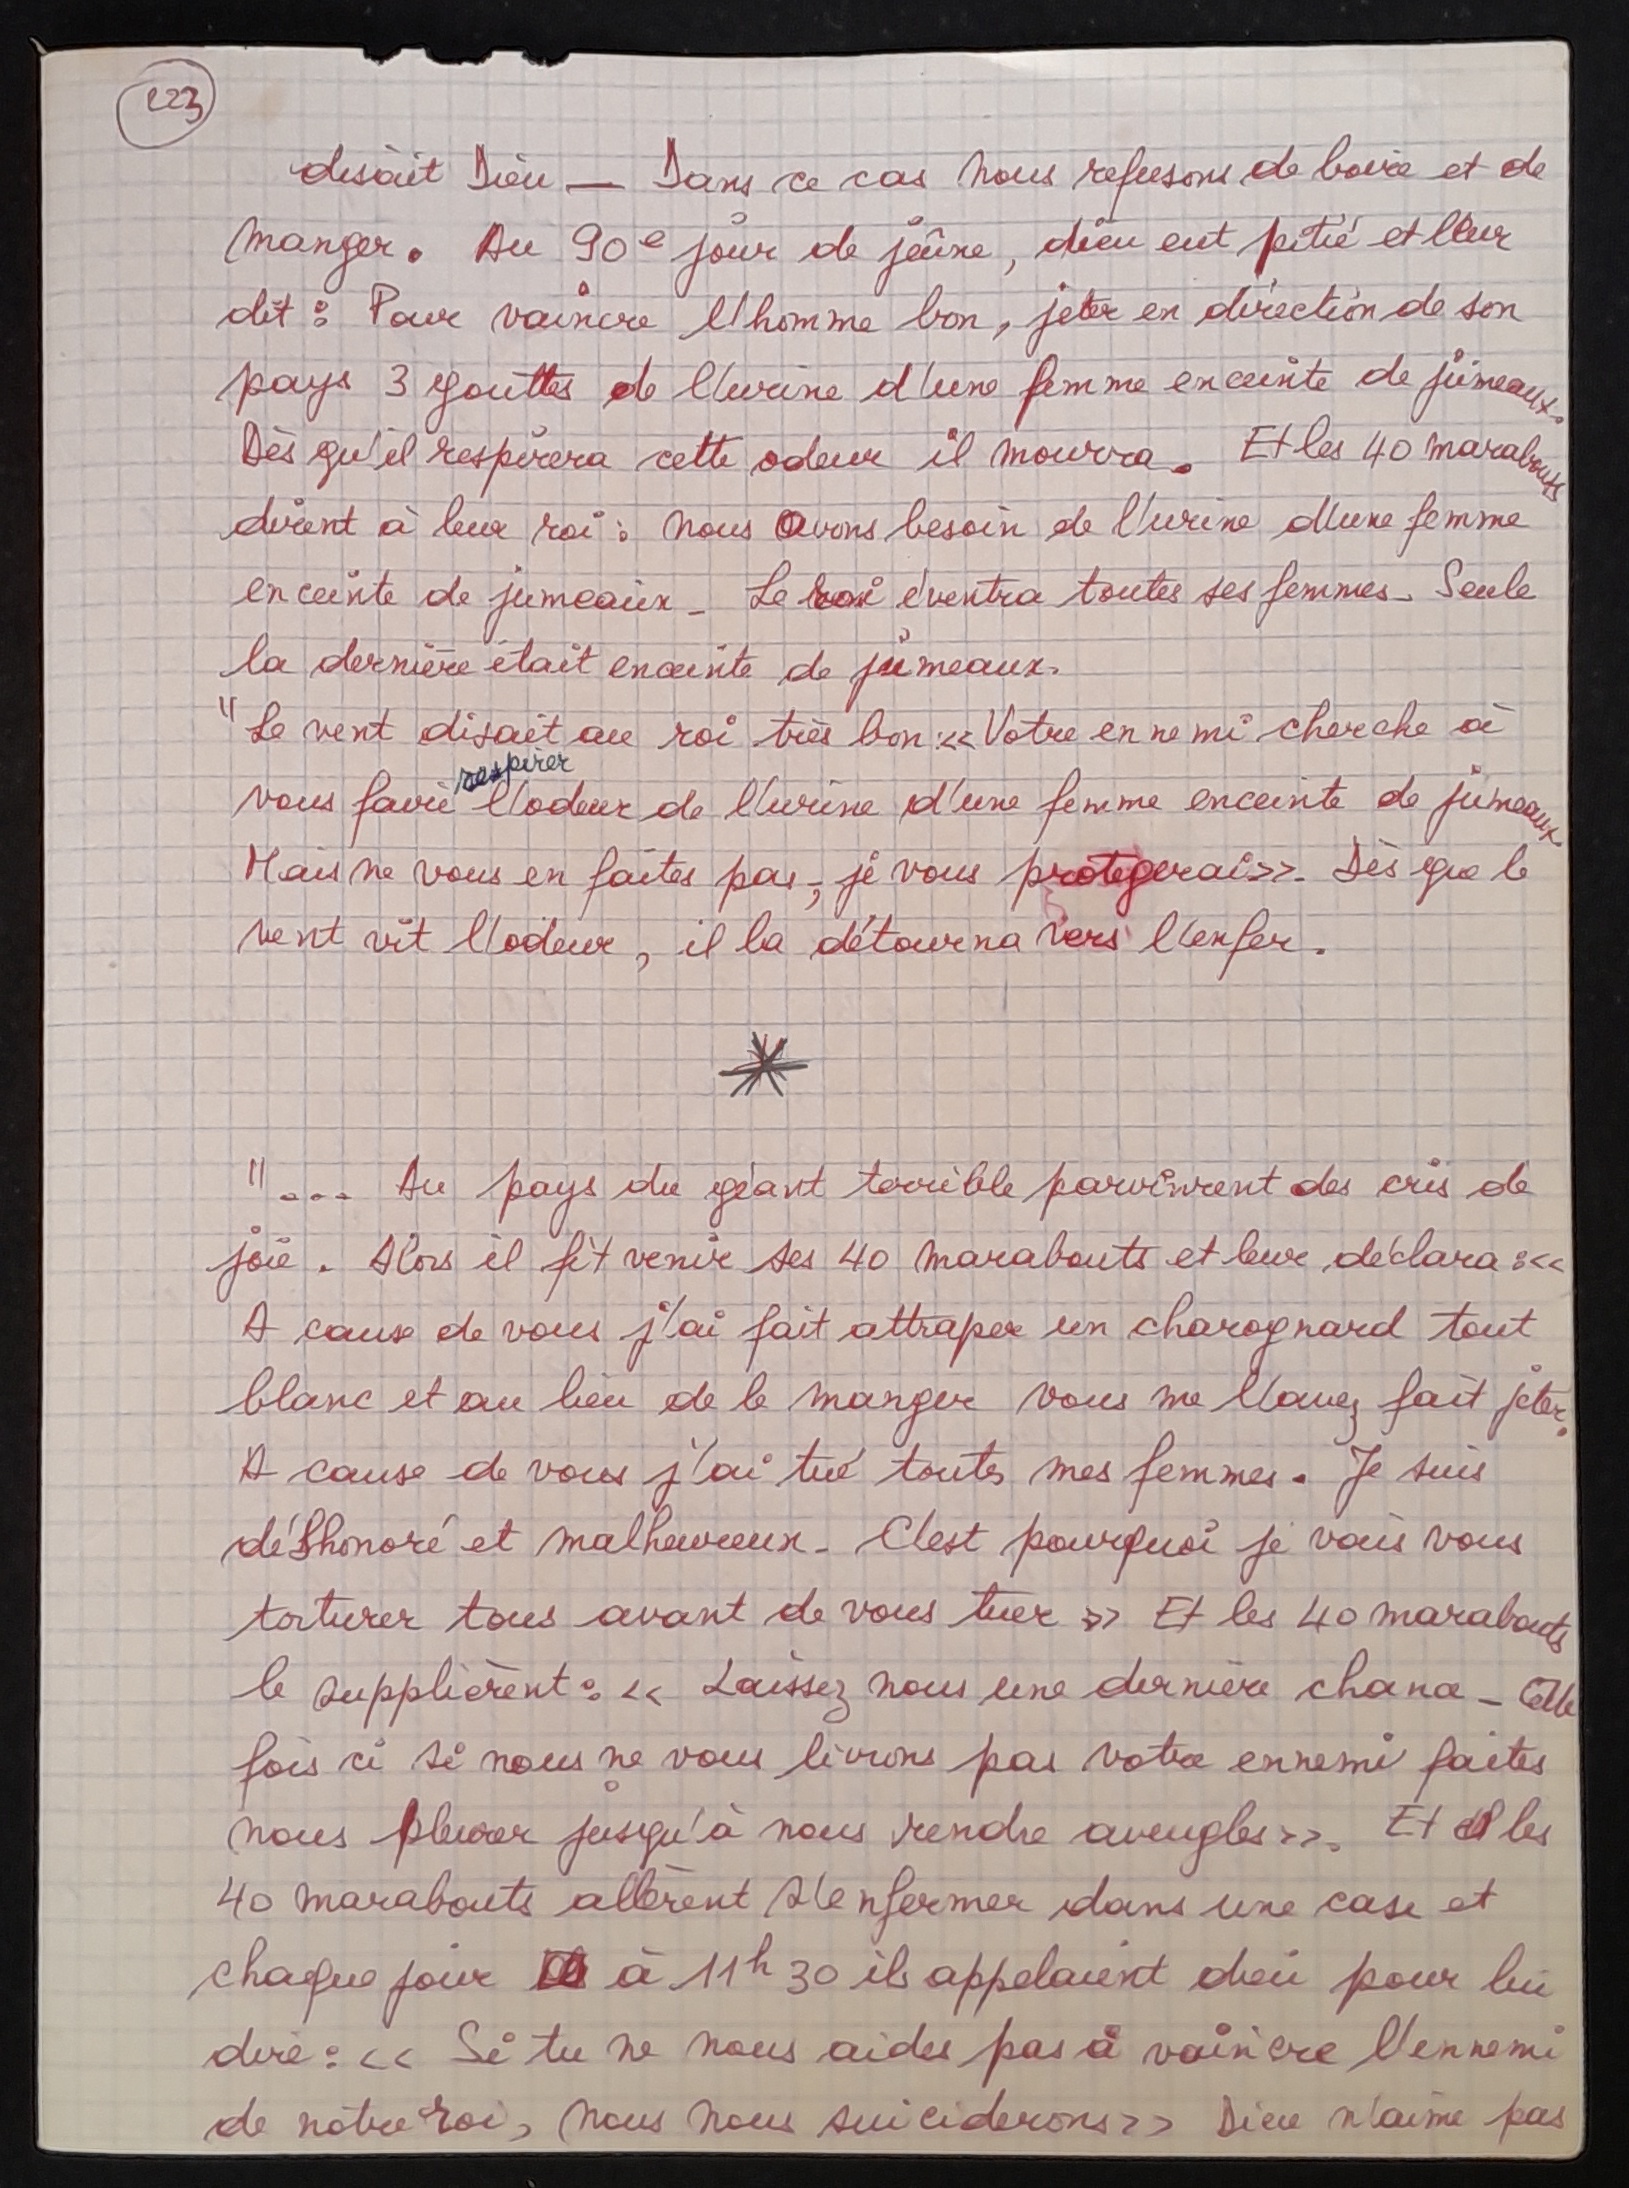 223
disait Dieu — Dans ce cas nous refusons de boire et de
manger. Au 90e jour de jeûne, dieu eut pitié et leur
dit : Pour vaincre l'homme bon, jeter en direction de son
pays 3 gouttes de l'urine d'une femme enceinte de jumeaux.
Dès qu'il respirera cette odeur il mourra. Et les 40 marabouts
dirent à leur roi : nous avons besoin de l'urine d'une femme
enceinte de jumeaux - Le roi éventra toutes ses femmes - Seule
la dernière était enceinte de jumeaux.
" Le vent disait au roi très bon : << Votre ennemi cherche à
respirer
vous faire l'odeur de l'urine d'une femme enceinte de jumeaux.
Mais ne vous en faites pas, je vous protègerai >>. Dès que le
vent vit l'odeur, il la détourna vers l'enfer.
*
" .... Au pays du géant terrible parvinrent des cris de
joie. Alors il fit venir ses 40 marabouts et leur déclara : <<
A cause de vous j'ai fait attraper un charognard tout
blanc et au lieu de le manger vous me l'avez fait jeter.
A cause de vous j'ai tué toutes mes femmes. Je suis
déshonoré et malheureux - C'est pourquoi je vais vous
torturer tous avant de vous tuer >> Et les 40 marabouts
le supplièrent : << Laissez nous une dernière chance - Cette
fois ci si nous ne vous livrons pas votre ennemi faites
nous pleurer jusqu'à nous rendre aveugles >>. Et les
40 marabouts allèrent s'enfermer dans une case et
chaque jour à 11h 30 ils appelaient dieu pour lui
dire : << Si tu ne nous aides pas à vaincre l'ennemi
de notre roi, nous nous suiciderons >> Dieu n'aime pas